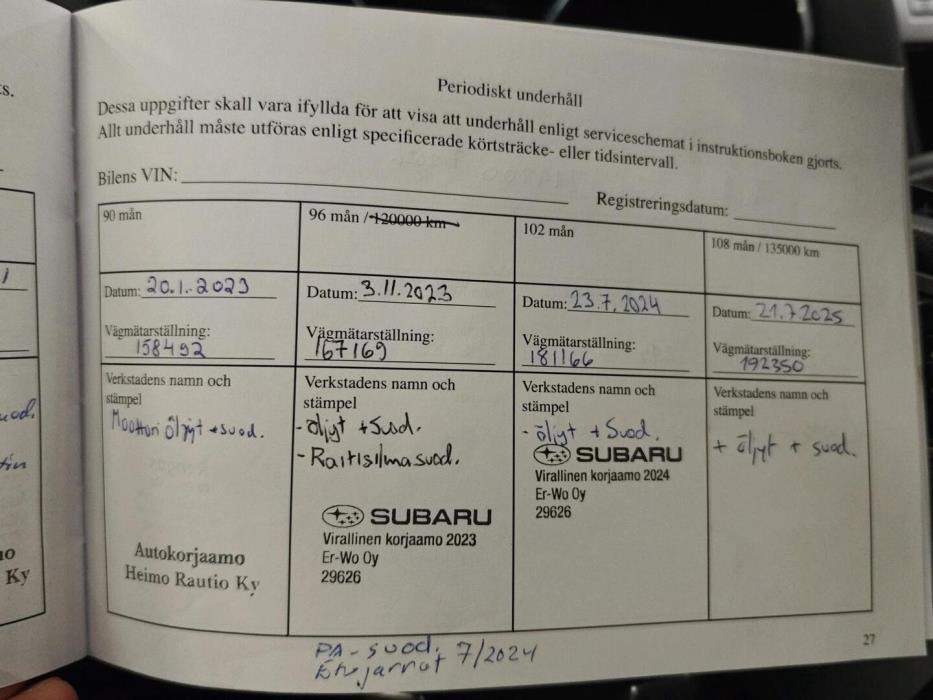 s.
Periodiskt underhåll
Dessa uppgifter skall vara ifyllda för att visa att underhåll enligt serviceschemat i instruktionsboken gjorts.
Allt underhåll måste utföras enligt specificerade körtsträcke- eller tidsintervall.
Bilens VIN:
Registreringsdatum:
90 mån
Datum: 20.1.-2023
Vägmätarställning:
158492
Verkstadens namn och
stämpel
Moottori öljyt + suod.
Autokorjaamo
Heimo Rautio Ky
96 mån / 120000 km
Datum: 3.11.2023
Vägmätarställning:
167169
Verkstadens namn och
stämpel
- öljyt + Suod.
- Raitisilmasuod.
SUBARU
Virallinen korjaamo 2023
Er-Wo Oy
29626
102 mån
Datum: 23.7.2024
Vägmätarställning:
181166
Verkstadens namn och
stämpel
- öljyt + Suod.
SUBARU
Virallinen korjaamo 2024
Er-Wo Oy
29626
108 mån / 135000 km
Datum: 21.7.2025
Vägmätarställning:
192350
Verkstadens namn och
stämpel
+ öljyt + suod.
PA-suod.
Etujarrut 7/2024
27
Ky